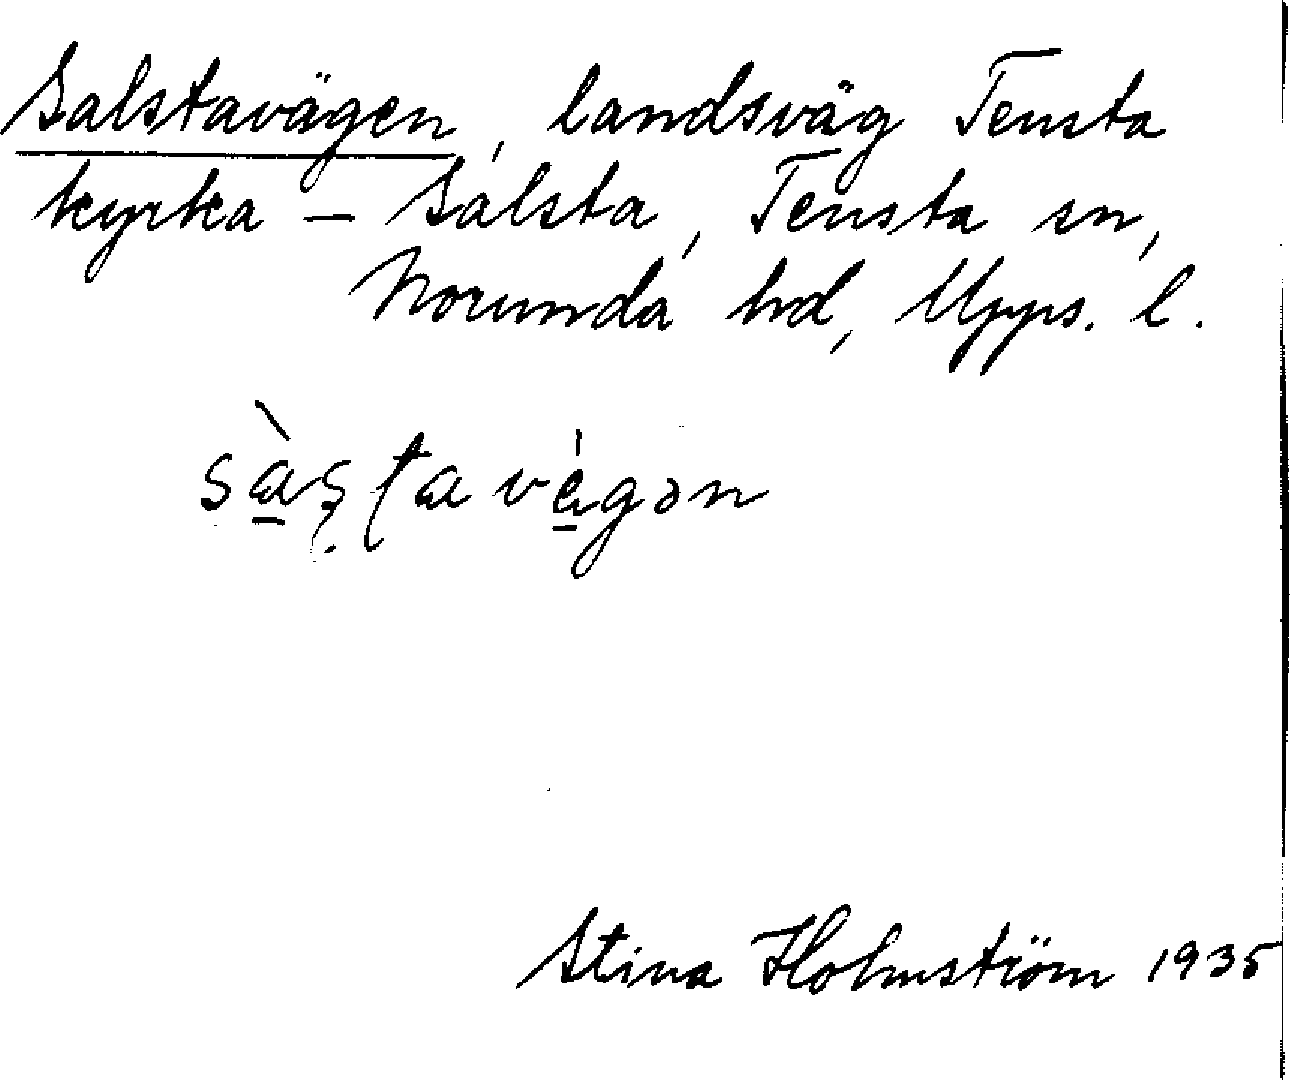 Salstavägen, landsväg Tensta
kyrka – Salsta, Tensta sn,
Norunda hd, Upps. l.
sàṣṭavègən
Stina Holmström 1935